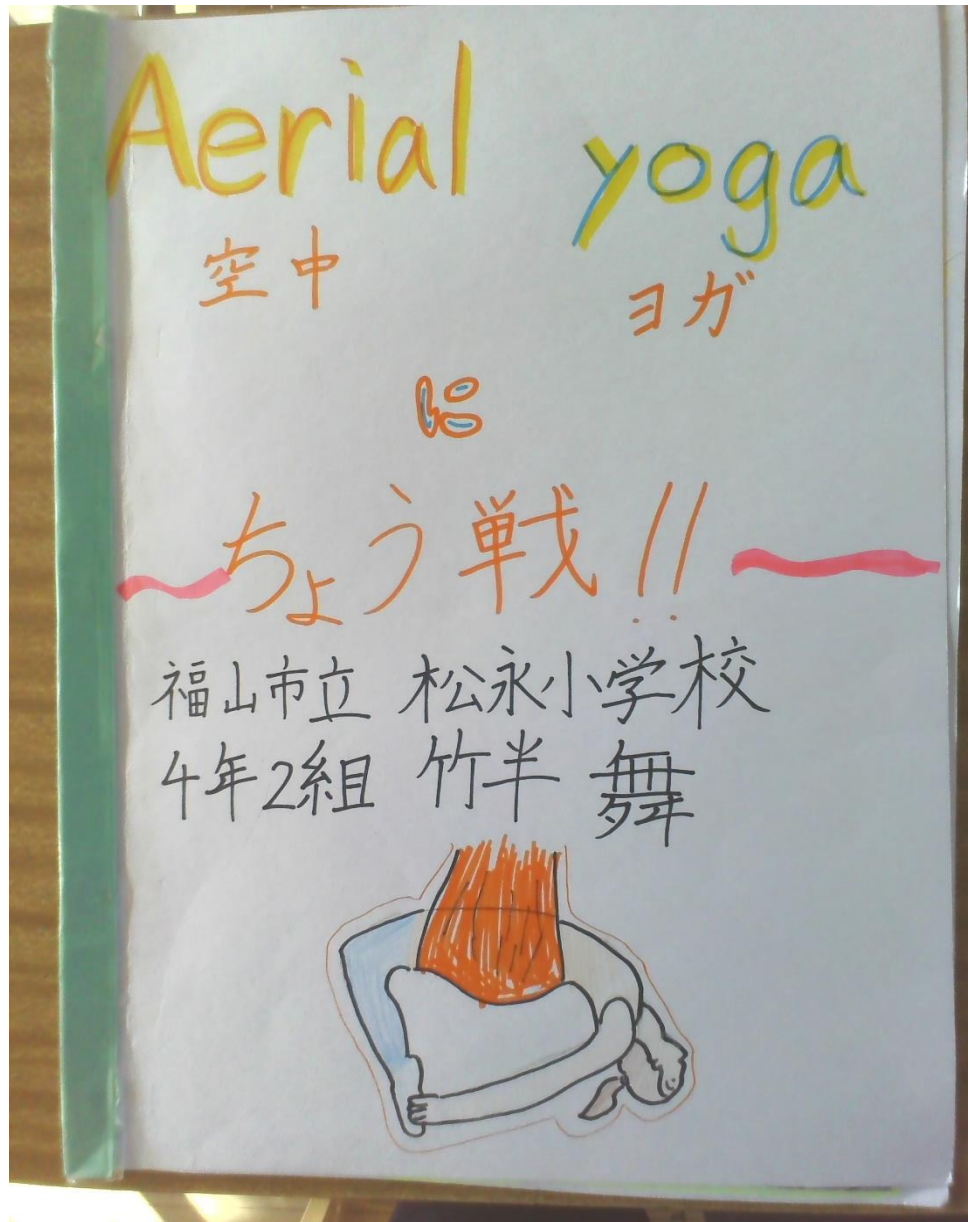 Aerial yoga
空中 ヨガ
に
ちょう戦!!
福山市立 松永小学校
4年2組 竹半 舞